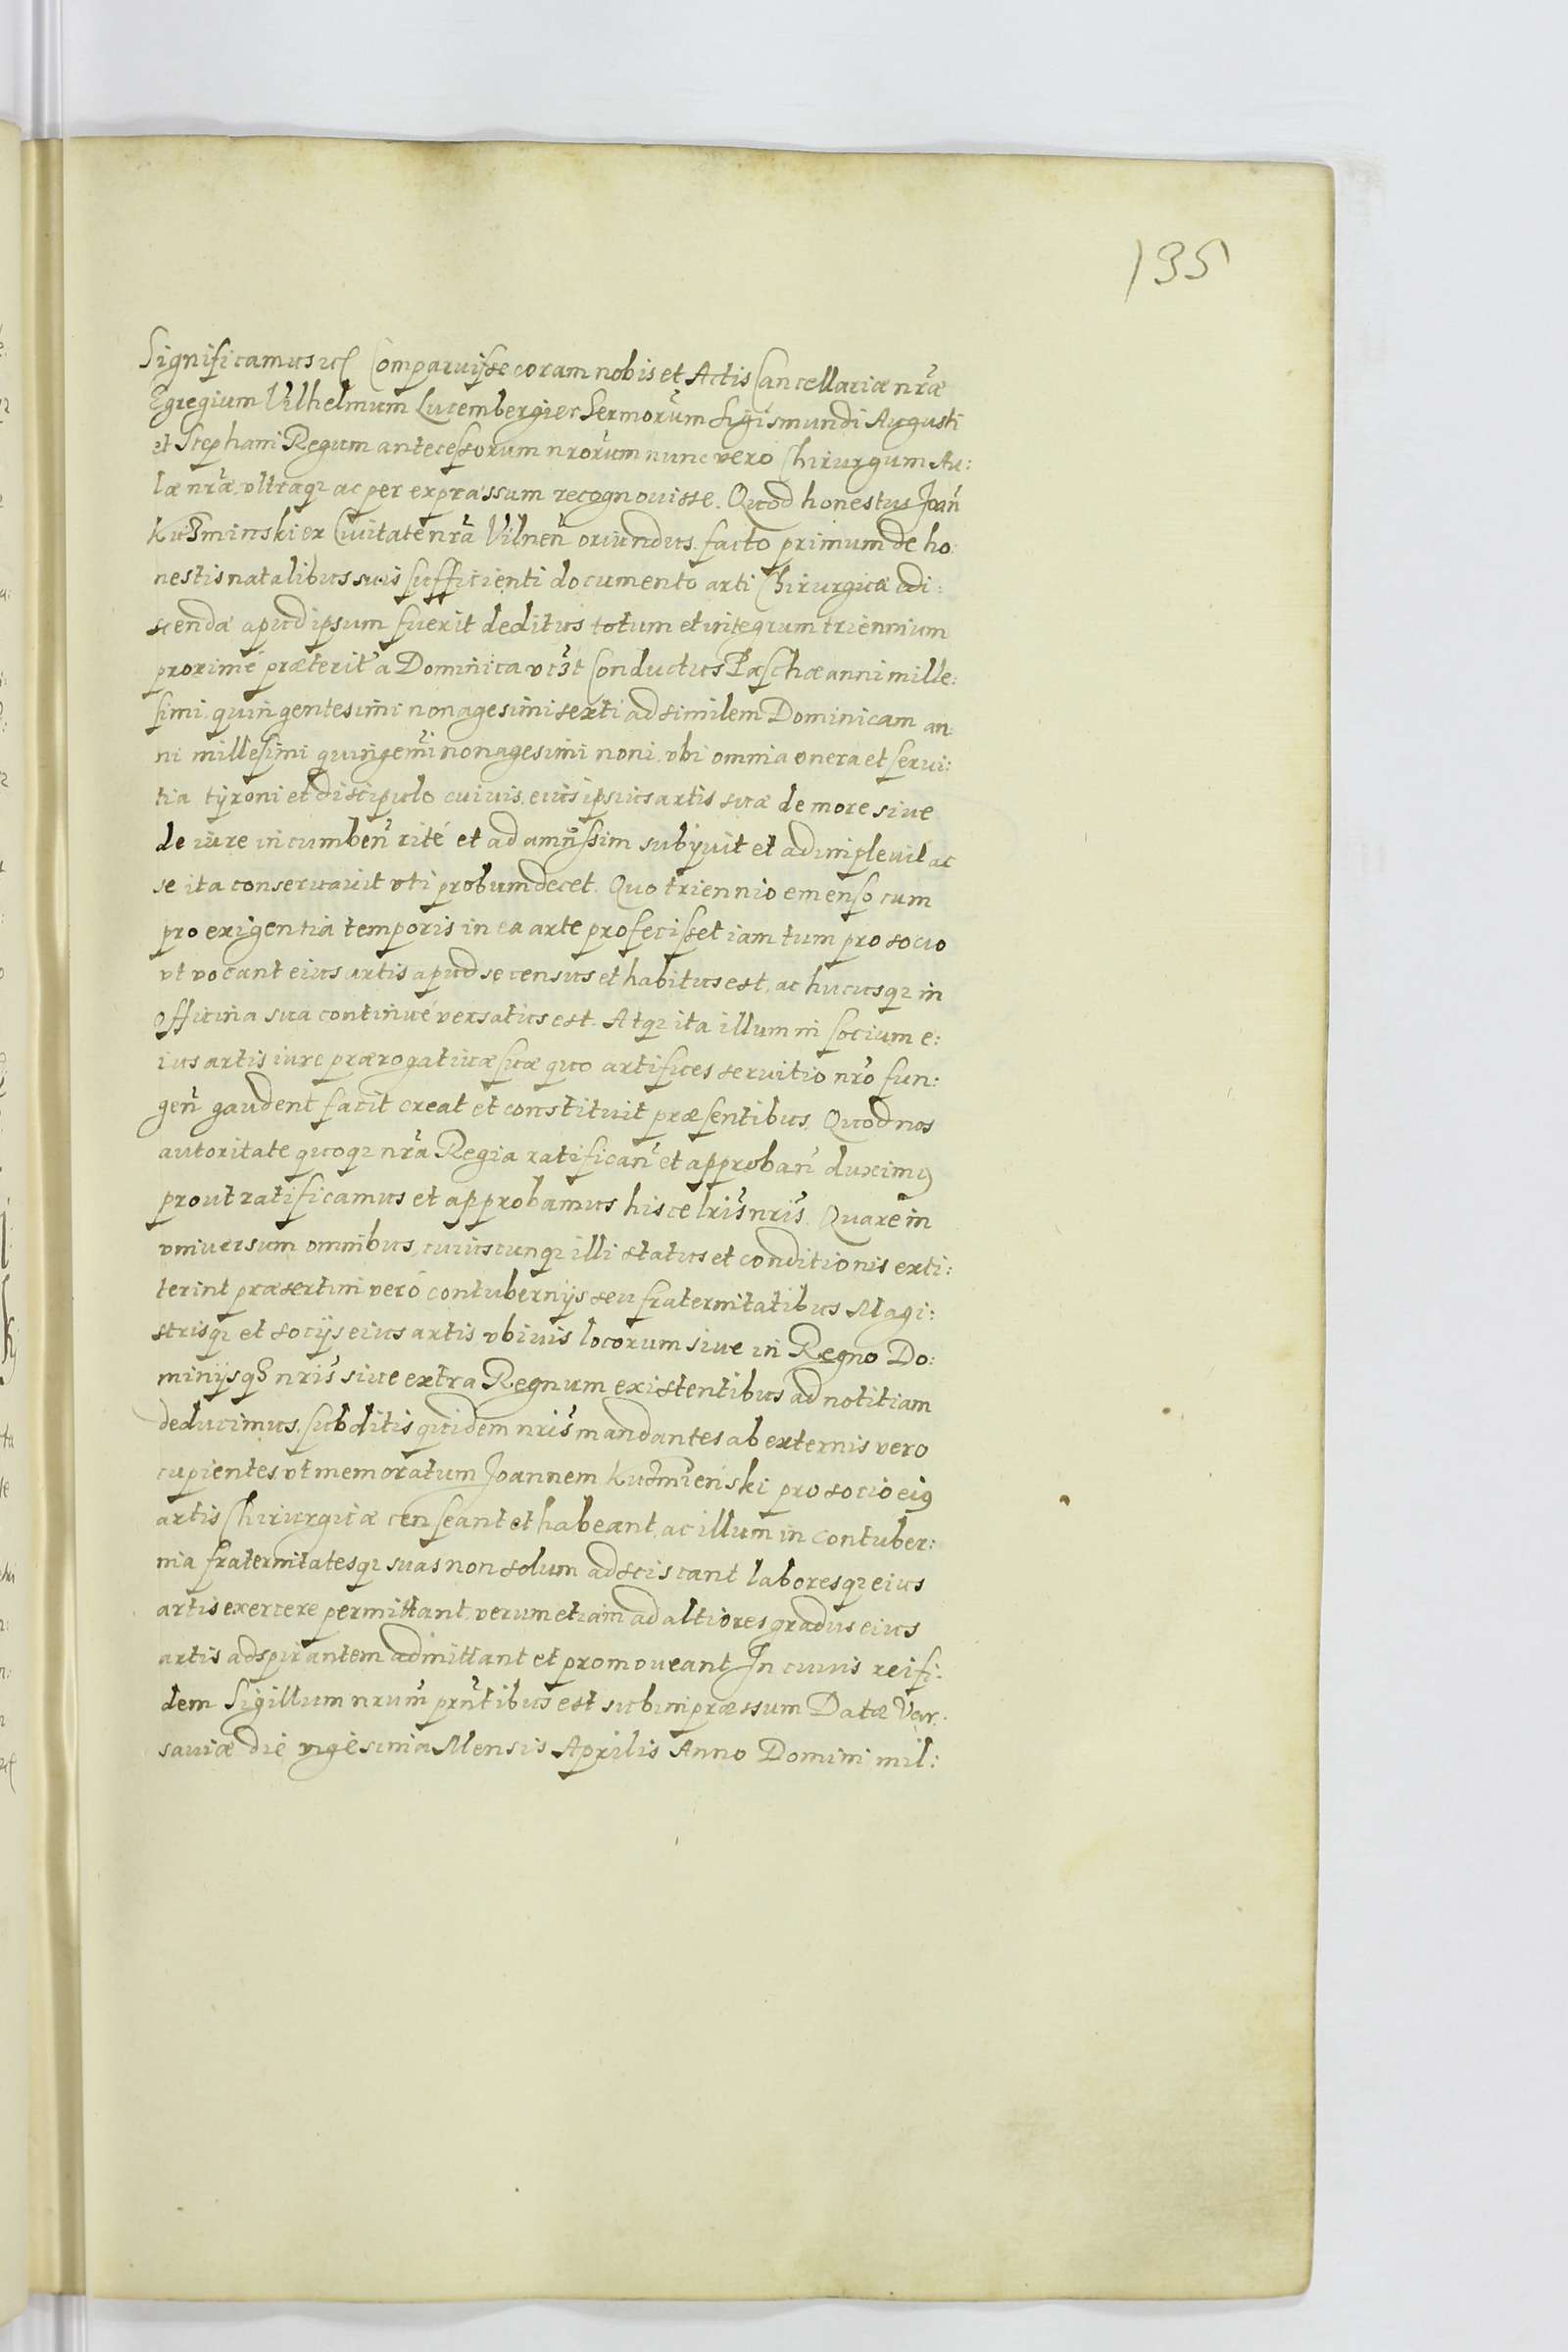 195
Significamus etc Comparuisse coram nobis et Actis Cancellariæ nr̃æ
Egregium Vilhelmum Lucembergier Sermorũm Sigismundi Augusti
et Stephani Regum antecessorum nrorũm nunc vero Chirurgum Au:
læ nr̃æ, vltroq₃ ac per expræssum recognouisse. Quod honestus Joañ
Kuśminski ex Ciuitate nr̃a Vilneñ oriundus. facto primum de ho:
nestis natalibus suis sufficienti documento arti Chirurgicæ adi:
scendæ apud ipsum fuerit deditus totum et integrum triennium
proximé præterit̃ a Dominica Conductus Paschæ anni mille:
simi quingentesimi nonagesimi sexti ad similem Dominicam an:
ni millesimi quingem̃i nonagesimi noni, vbi omnia onera et serui:
tia tyroni et discipulo cuiuis eius ipsius artis suæ de more siue
de iure incumbeñ rité et ad amũssim subyuit et adimpleuit ac
se ita conseruauit vti probum decet. Quo triennio emenso cum
pro exigentia temporis in ea arte profecisset iam tum pro socio
vt vocant eius artis apud se census et habitus est, ac hucusq₃ in
officina sua continué versatus est. Atq₃ ita illum in socium e:
ius artis iure prærogatiuæ suæ quo artifices seruitio nr̃o fun:
geñ gaudent facit creat et constituit præsentibus. Quod nos
autoritate quoq₃ nr̃a Regia ratificañ et approbañ duximꝰ
prout ratificamus et approbamus hisce lr̃is nr̃is. Quare in
vniuersum omnibus, cuiuscunq₃ illi status et conditionis exti:
terint præsertim veró contubernijs seu fraternitatibus Magi:
strisq₃ et socijs eius artis vbiuis locorum siue in Regno Do:
minijsq₃ nr̃is siue extra Regnum existentibus ad notitiam
deducimus. subditis quidem nr̃is mandantes ab externis vero
cupientes, vt memoratum Joannem Kuśmieński pro socio eiꝰ
artis Chirurgicæ censeant et habeant, ac illum in contuber:
nia fraternitatesq₃ suas non solum adsciscant laboresq₃ eius
artis exercere permittant, verum etiam ad altiores gradus eius
artis adspirantem admittant et promoueant. In cuius rei fi:
dem Sigillum nrum̃ pr̃ntibus est subimpræssum Datæ Var:
sauiæ die vigesima Mensis Aprilis Anno Domini mil: